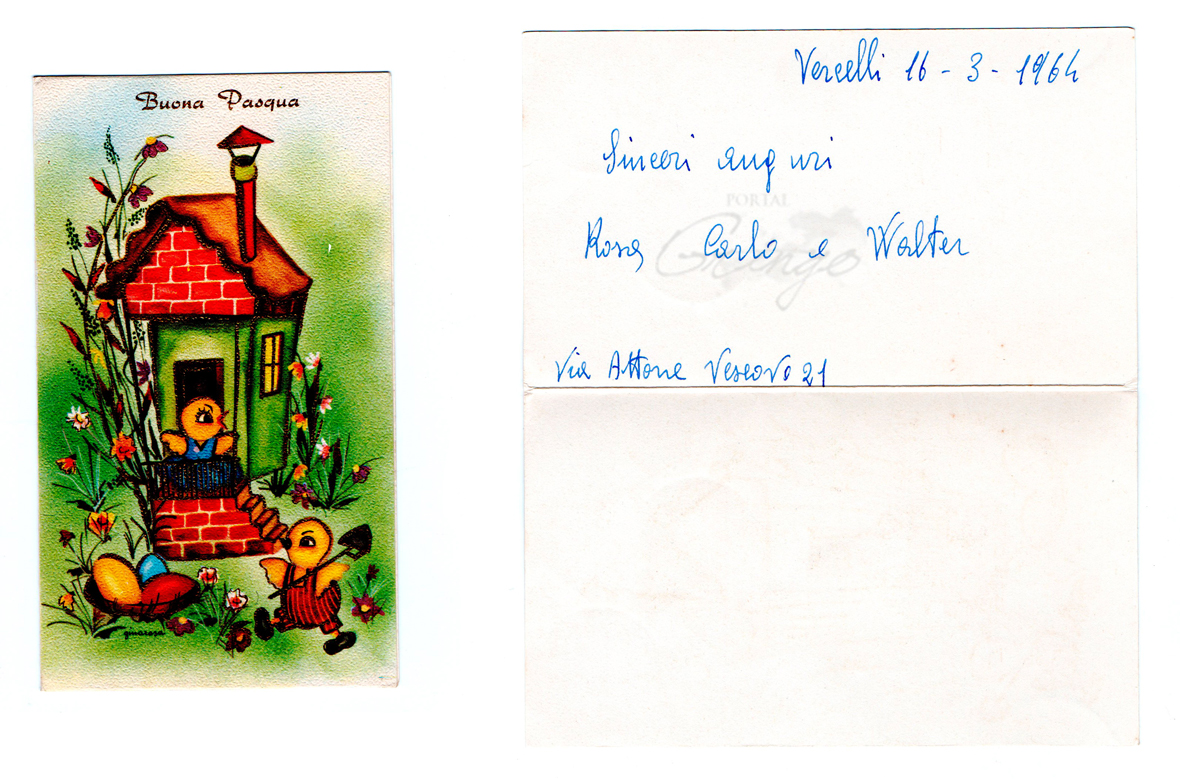 Buona Pasqua
ginarosa
Vercelli 16-3-1964
Sinceri auguri
PORTAL
Gringo
Rosa Carlo e Walter
Via Attone Vescovo 21